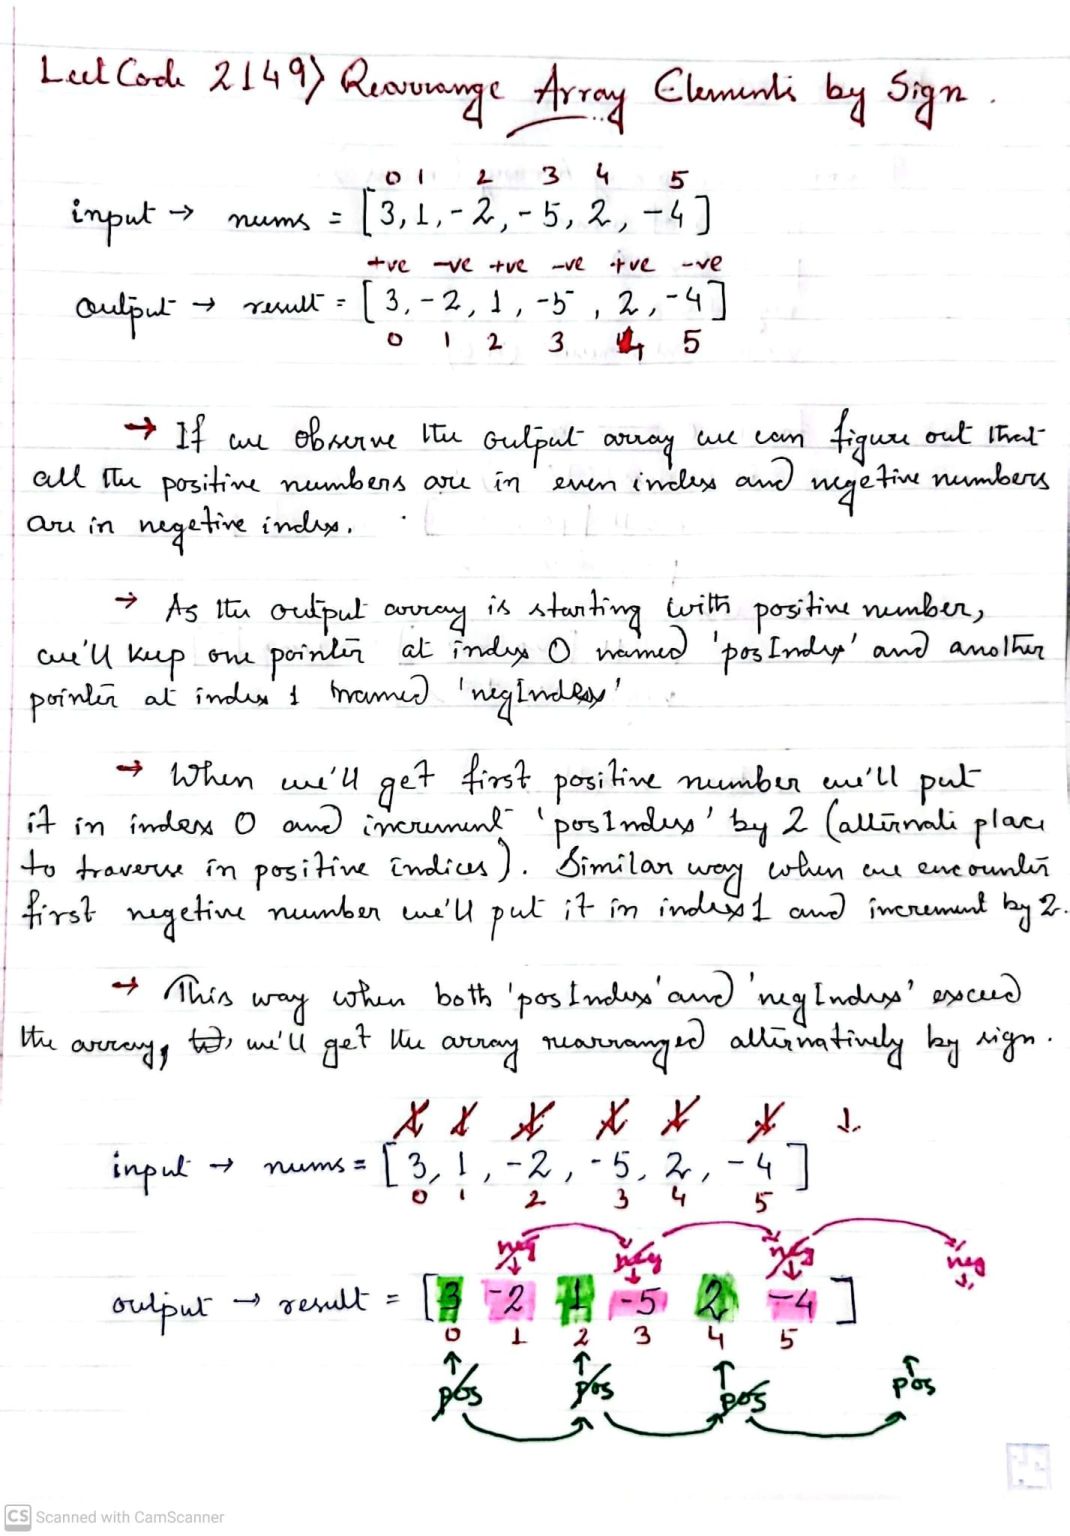 LeetCode 2149) Rearrange Array Elements by Sign.
0 1 2 3 4 5
input → nums = [3, 1, -2, -5, 2, -4]
+ve -ve +ve -ve +ve -ve
output → result = [3, -2, 1, -5, 2, -4]
0 1 2 3 4 5
→ If we observe the output array we can figure out that
all the positive numbers are in even index and negetive numbers
are in negetive index.
→ As the output array is starting with positive number,
we'll keep one pointer at index 0 named 'posIndex' and another
pointer at index 1 named 'negIndex'
→ When we'll get first positive number we'll put
it in index 0 and increment 'posIndex' by 2 (alternate place
to traverse in positive indices). Similar way when we encounter
first negetive number we'll put it in index 1 and increment by 2.
→ This way when both 'posIndex' and 'negIndex' exceed
the array, we'll get the array rearranged alternatively by sign.
input → nums = [3, 1, -2, -5, 2, -4]
0 1 2 3 4 5
neg neg neg neg
output → result = [3 -2 1 -5 2 -4]
0 1 2 3 4 5
pos pos pos pos
CS Scanned with CamScanner